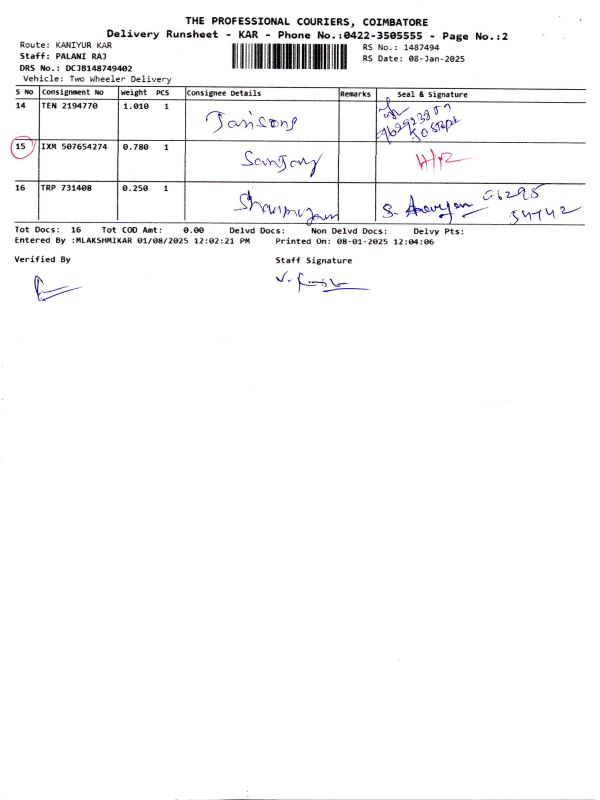 THE PROFESSIONAL COURIERS, COIMBATORE
Delivery Runsheet - KAR - Phone No.:0422-3505555 - Page No.:2
Route: KANIYUR KAR RS No.: 1487494
Staff: PALANI RAJ RS Date: 08-Jan-2025
DRS No.: DCJB148749402
Vehicle: Two Wheeler Delivery
S No Consignment No Weight PCS Consignee Details Remarks Seal & Signature
14 TEN 2194770 1.010 1
15 IXM 507654274 0.780 1 Sanjay H/R
16 TRP 731408 0.250 1
Tot Docs: 16 Tot COD Amt: 0.00 Delvd Docs: Non Delvd Docs: Delvy Pts:
Entered By :MLAKSHMIKAR 01/08/2025 12:02:21 PM Printed On: 08-01-2025 12:04:06
Verified By Staff Signature